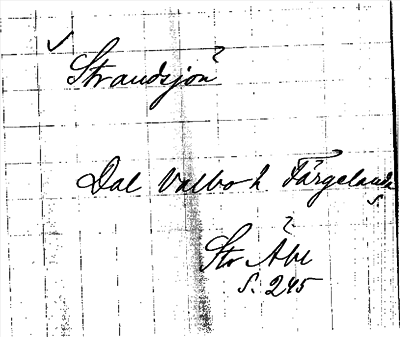 ✓
Strandsjön ?
Dal Valbo h. Färgelanda
s.
?
Str Åbl
S. 245